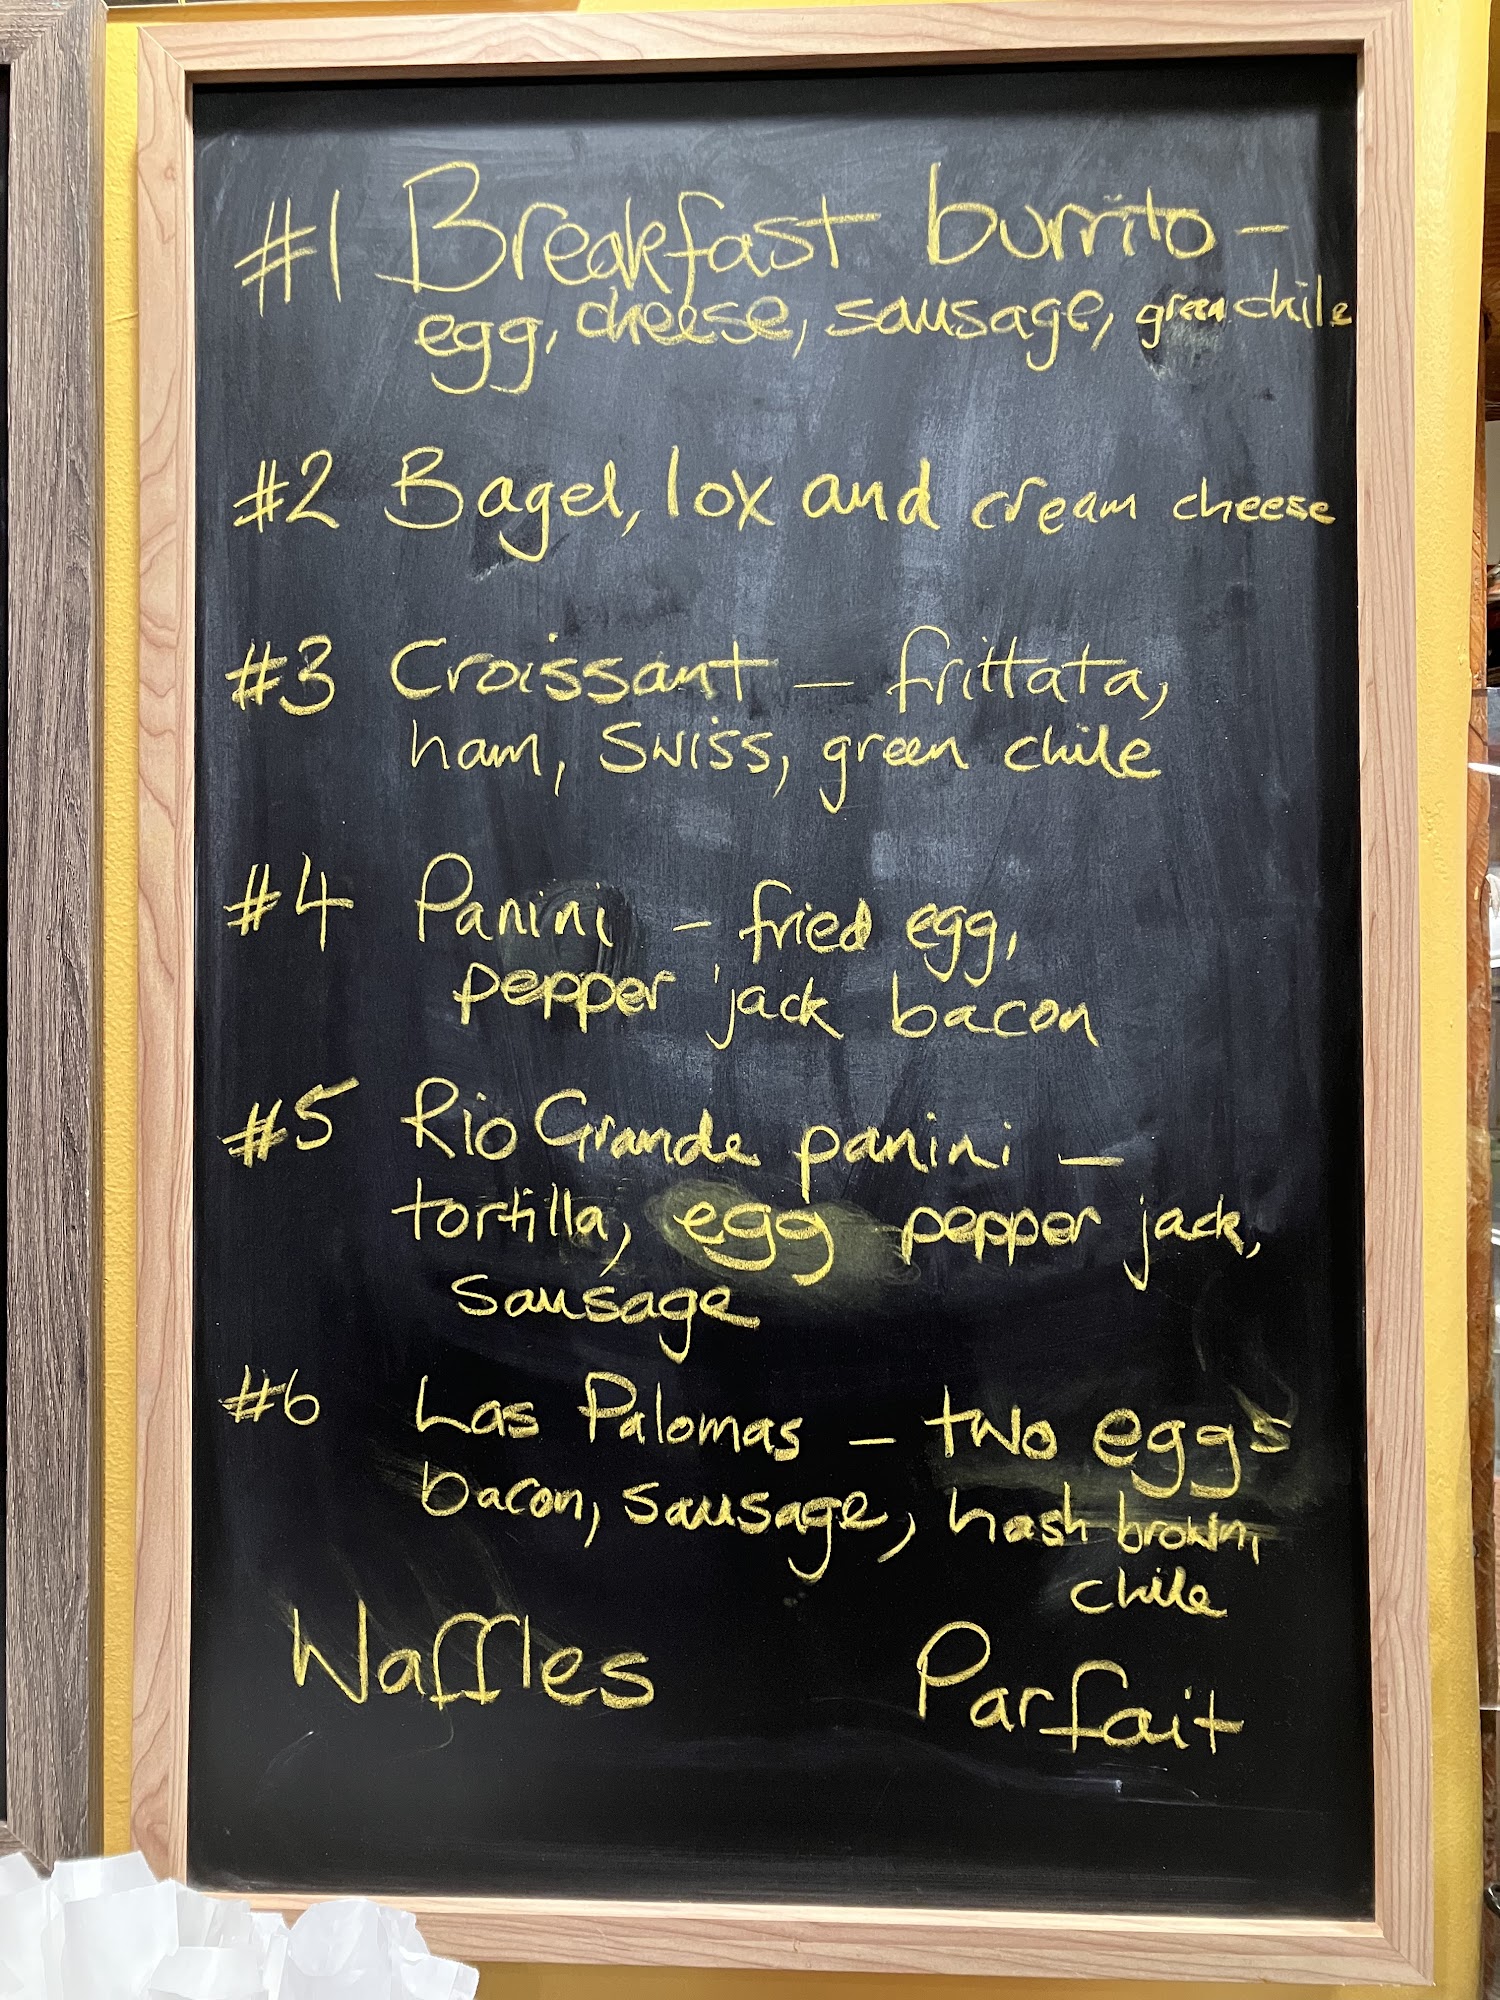 #1 Breakfast burrito -
egg, cheese, sausage, green chile
#2 Bagel, lox and cream cheese
#3 Croissant - frittata,
ham, Swiss, green chile
#4 Panini - fried egg,
pepper jack bacon
#5 Rio Grande panini -
tortilla, egg pepper jack,
sausage
#6 Las Palomas - two eggs
bacon, sausage, hash brown,
chile
Waffles Parfait